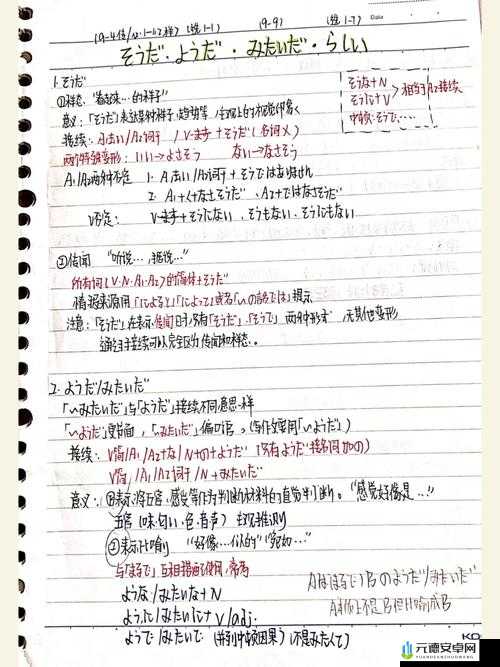 (9-9) (1-7) Date
そうだ・ようだ・みたいだ・らしい
1. そうだ
①样态:"看起来…的样子"
意义:「そうだ」表达某种样子、趋势等
そうな+N
そうに+V
相当于A2接续
中顿:そうで、…
接续: A1去い/A2词干 / Vます+そうだ(名词X)
两个特殊变形: いい→よさそう ない→なさそう
A1/A2两种否定 1. A1去い/A2词干+そうではありません
2. A1+く+なさそうだ、A2+ではなさそうだ
V否定: Vます+そうにない、そうもない、そうにもない
②传闻 "听说…,据说…"
所有词(V·N·A1·A2)的简体+そうだ
情报来源用「によると」「によって」或者「〜の話では」提示
注意:「そうだ」在表示传闻时,只有「そうだ」「そうで」两种形式,无其他变形
通过接续可以完全区分传闻和样态。
2. ようだ/みたいだ
「〜みたいだ」与「ようだ」接续不同意思一样
「〜ようだ」更书面,「みたいだ」偏口语。(写作文要用「〜ようだ」)
接续: V简/A1/A2+な/N+の+ようだ (只有ようだ接名词加の)
V简/A1/A2词干/N+みたいだ
意义:①表示将五官、感受等作为判断材料的直觉判断。"感觉好像是…"
五官(味·匂い·色·音声) 主观推测
②表示比喻 "好像…似的" "宛如…"
与「まるで」互相搭配使用,常为
ような/みたいな+N
ように/みたいに+V/adj.
ようで/みたいで (并列中顿因果)(不是みたくて)
Aはまるで)Bのようだ/みたいだ
A本质上不是B但比喻成B
KO
元德安卓网